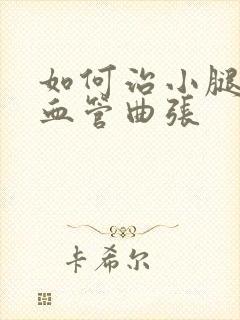 如何治小腿
血管曲張
卡希尔